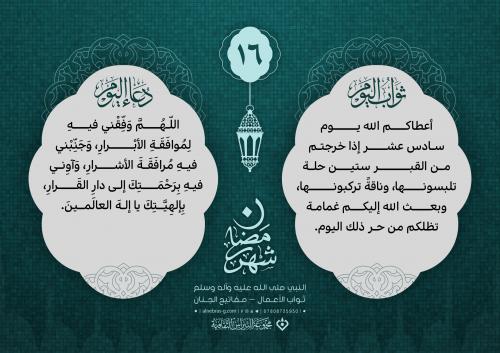 ١٦
ثواب اليوم
أعطاكـــم الله يـــوم
سادس عشـــر إذا خرجتم
مـن القبـــر ستين حلـة
تلبسونــــها، وناقةً تركبونــــها،
وبعـث الله إليكـــم غمامة
تظلكم من حر ذلك اليوم.
دعاء اليوم
اللّـهُـــمَّ وَفِّقْني فيـــهِ
لِمُوافَقَـةِ الأبْـــرارِ، وَجَنِّبْني
فيـهِ مُرافَقَـــةَ الأشـرارِ، وَآوِني
فيهِ بِرَحْمَتِـــكَ إلى دارِ القَـــرارِ،
بِإلهِيَّتِـكَ يا إلـهَ العالَمـينَ.
شهر رمضان
النبي صلى الله عليه وآله وسلم
ثواب الأعمال – مفاتيح الجنان
alnebras-g.com
07808735950
مجموعة النبراس الثقافية